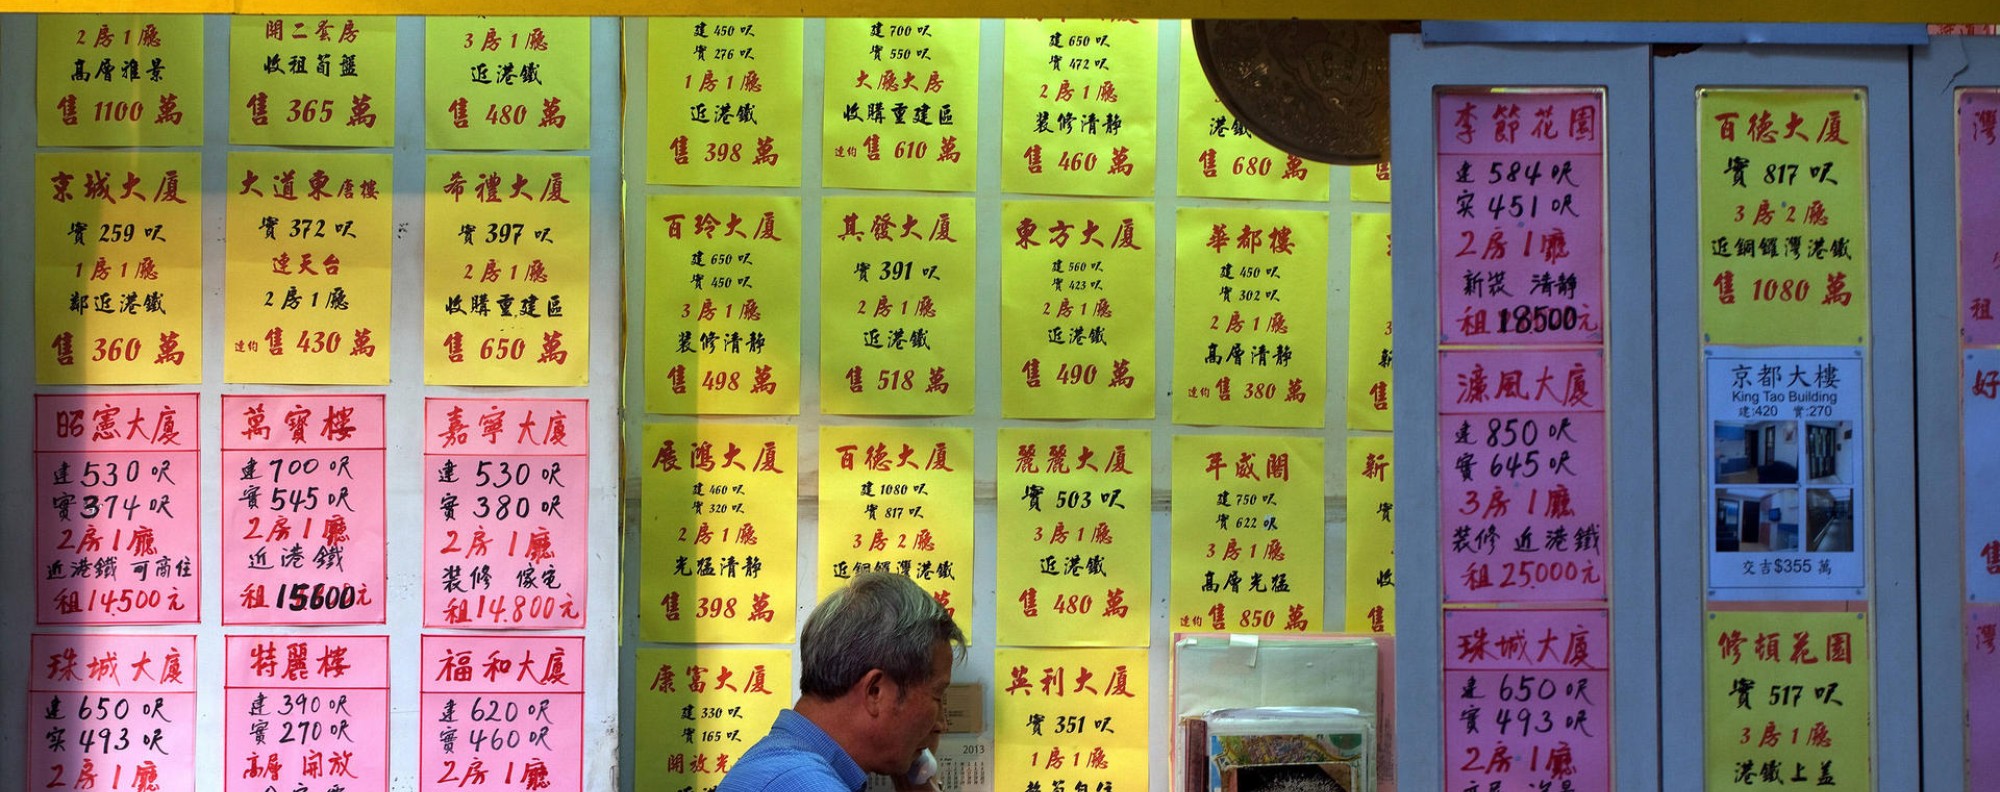 2房1廳
高層雅景
售 1100 萬
開二套房
收租荀盤
售 365 萬
3房1廳
近港鐵
售 480 萬
建 450 呎
實 276 呎
1房1廳
近港鐵
售 398 萬
建 700 呎
實 550 呎
大廳大房
收購重建區
連約 售 610 萬
建 650 呎
實 472 呎
2房1廳
裝修清靜
售 460 萬
港鐵
售 680 萬
京城大廈
實 259 呎
1房1廳
鄰近港鐵
售 360 萬
大道東唐樓
實 372 呎
連天台
2房1廳
連約 售 430 萬
希禮大廈
實 397 呎
2房1廳
收購重建區
售 650 萬
百玲大廈
建 650 呎
實 450 呎
3房1廳
裝修清靜
售 498 萬
其發大廈
實 391 呎
2房1廳
近港鐵
售 518 萬
東方大廈
建 560 呎
實 423 呎
2房1廳
近港鐵
售 490 萬
華都樓
建 450 呎
實 302 呎
2房1廳
高層清靜
連約 售 380 萬
昭憲大廈
建 530 呎
實 374 呎
2房1廳
近港鐵 可商住
租 14,500元
萬寶樓
建 700 呎
實 545 呎
2房1廳
近港鐵
租 15600元
嘉寧大廈
建 530 呎
實 380 呎
2房1廳
裝修 傢電
租 14,800元
展鴻大廈
建 460 呎
實 320 呎
2房1廳
光猛清靜
售 398 萬
百德大廈
建 1080 呎
實 817 呎
3房2廳
近銅鑼灣港鐵
萬
麗麗大廈
實 503 呎
3房1廳
近港鐵
售 480 萬
年威閣
建 750 呎
實 622 呎
3房1廳
高層光猛
連約 售 850 萬
新
實
收
售
珠城大廈
建 650 呎
实 493 呎
2房1廳
特麗樓
建 390 呎
實 270 呎
高層 開放
福和大廈
建 620 呎
實 460 呎
2房1廳
康富大廈
建 330 呎
實 165 呎
開放光
2013
英利大廈
實 351 呎
1房1廳
李節花園
建 584 呎
实 451 呎
2房1廳
新裝 清靜
租 18500元
濂風大廈
建 850 呎
實 645 呎
3房1廳
裝修 近港鐵
租 25,000元
珠城大廈
建 650 呎
實 493 呎
2房1廳
百德大廈
實 817 呎
3房2廳
近銅鑼灣港鐵
售 1080 萬
京都大樓
King Tao Building
建:420 實:270
交吉$355 萬
修頓花園
實 517 呎
3房1廳
港鐵上蓋
灣
租
好
售
灣